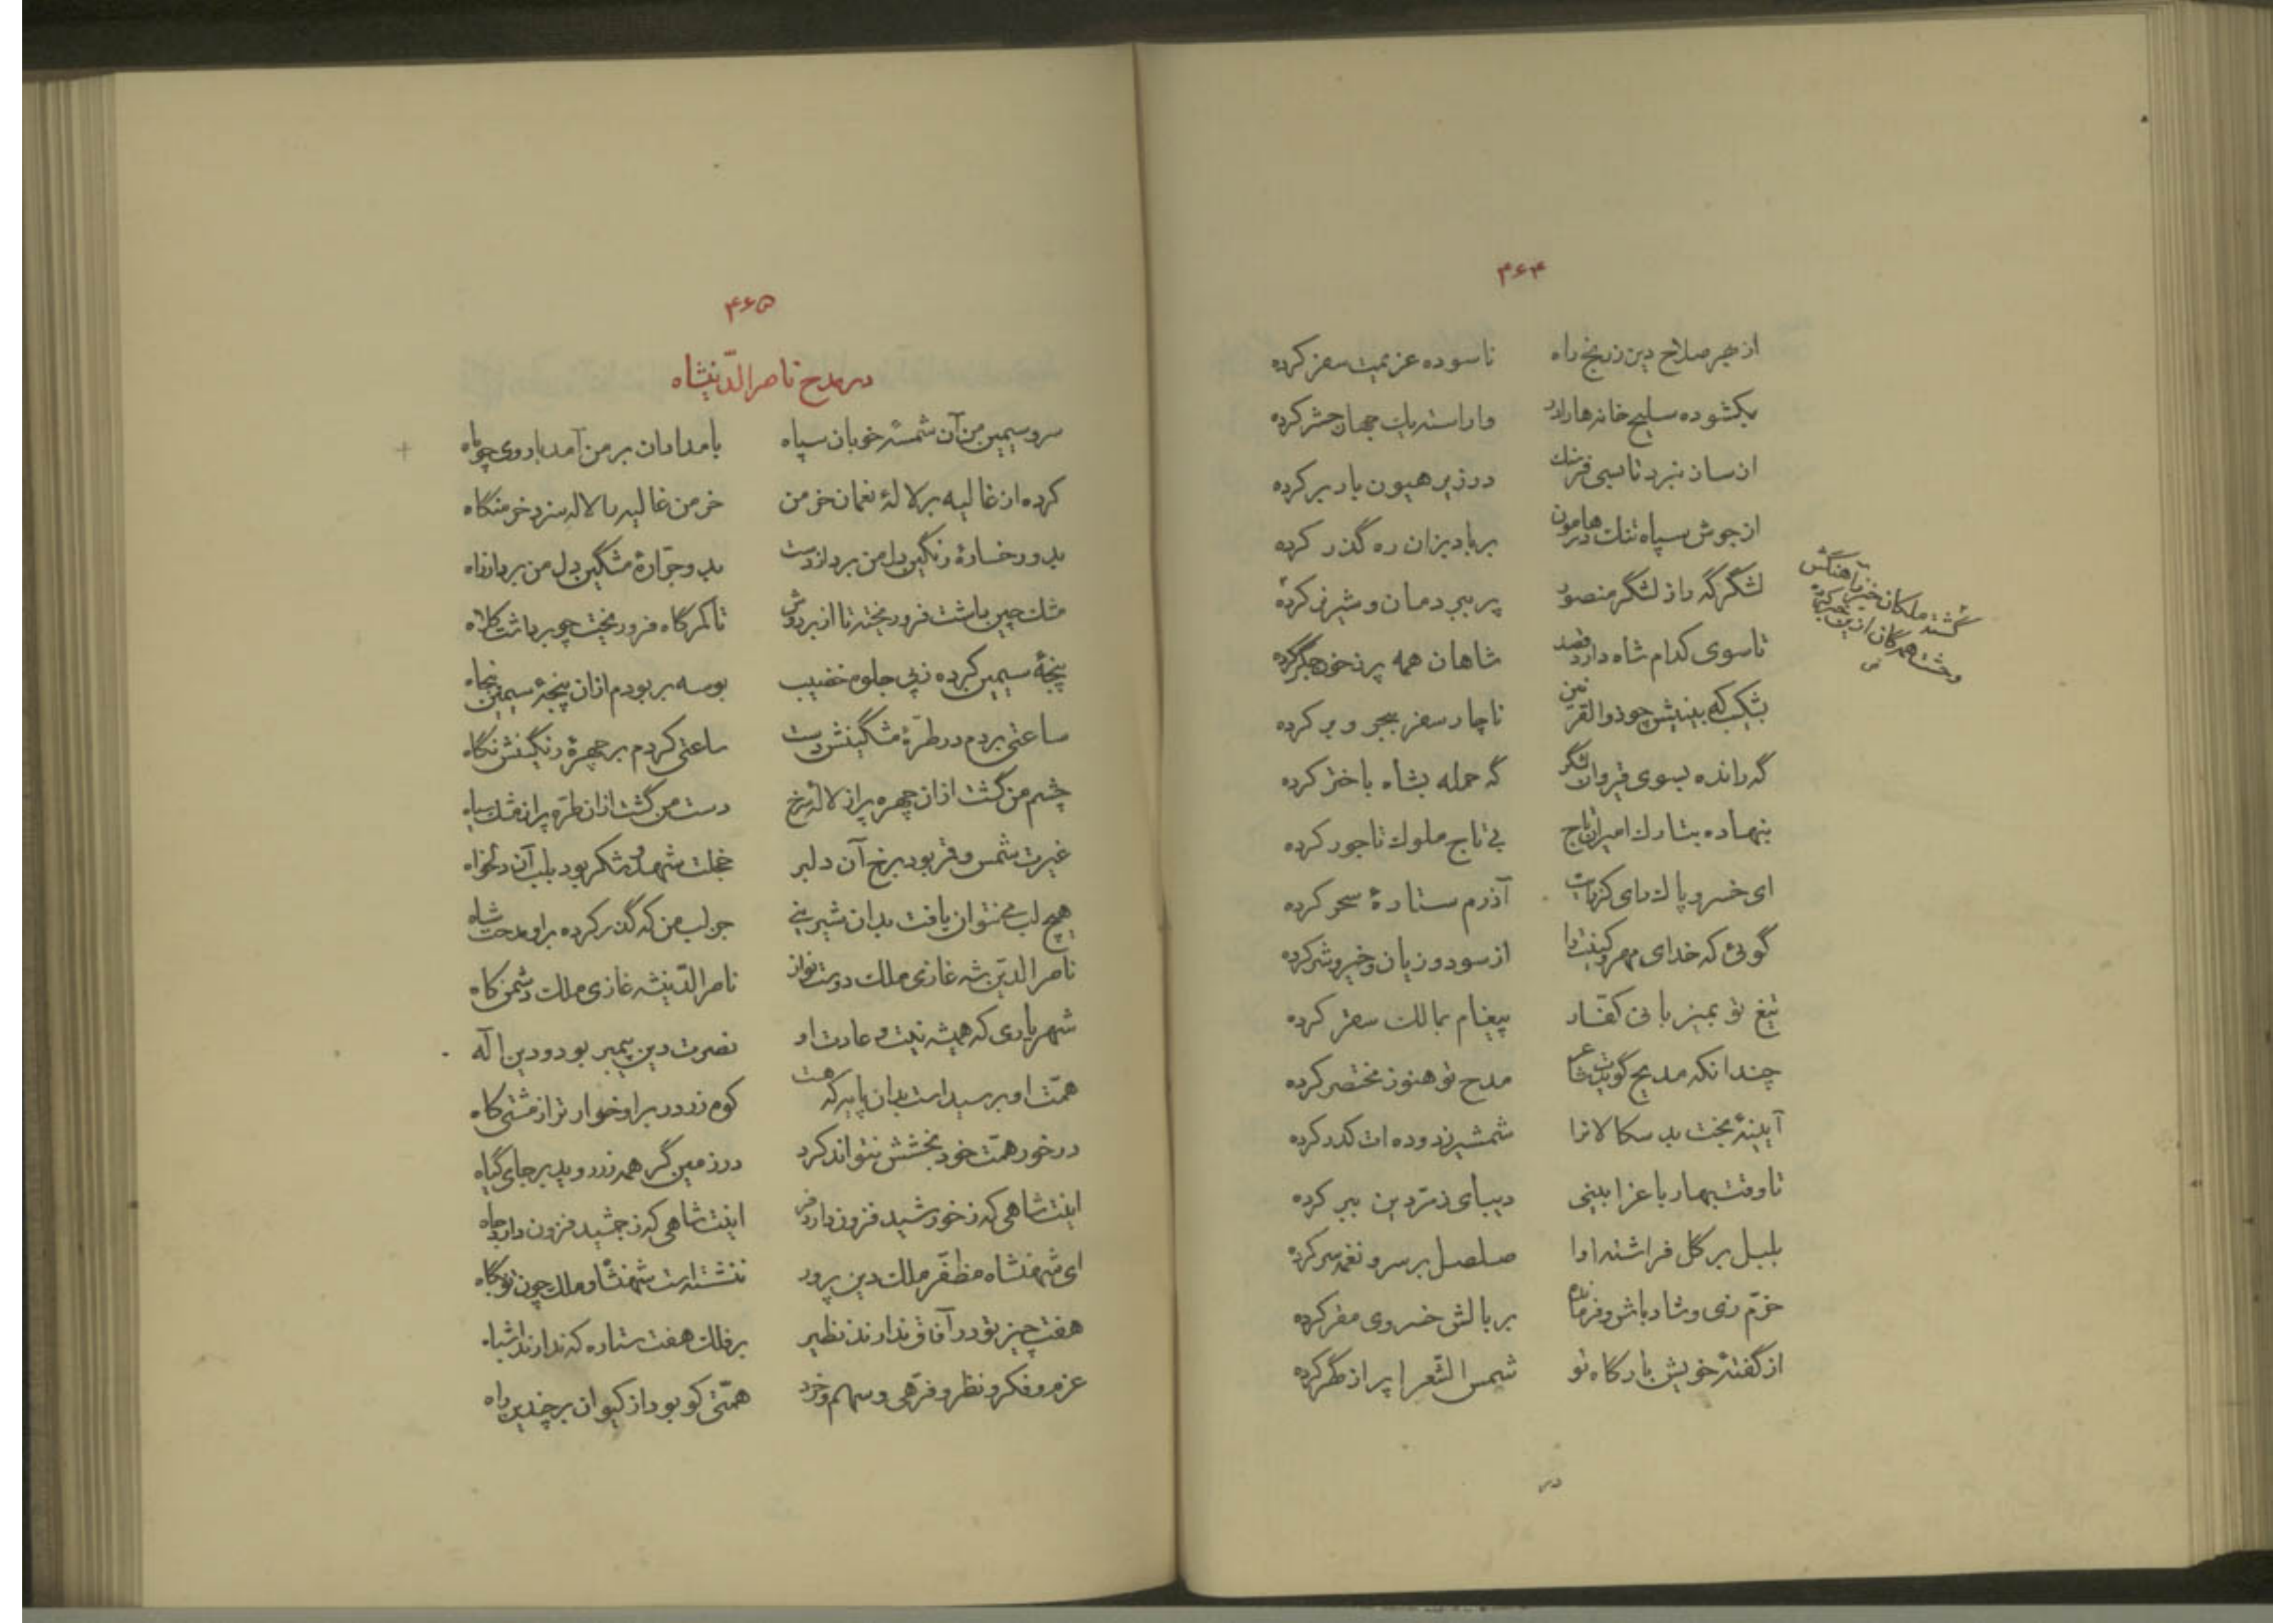 ۴۶۴
از بهر صلاح دین ز رنج راه ناسوده عزیمت سفر کرده
بگشوده سلیح خانه‌ها را در واراسته یک جهان حشر کرده
در زیر هیون باد بر کرده
از جوش سپاه تنک هامون در بادیزان ره گذر کرده
لشگرگه را ز لشگر منصور پر ببر دمان و شیر نر کرده
گشته ملکان خبر ز آهنگش
تا سوی کدام شاه دارد قصد شاهان همه پر ز خون جگر کرده
بینیش چو ذوالقرنین ناچار سفر ببحر و بر کرده
گه رانده بسوی قیروان لشگر گه حمله بشاه باختر کرده
بنهاده بتارک امیران تاج بی تاج ملوک تاجور کرده
ای خسرو پاک رای کز رایت آذرم ستارهٔ سحر کرده
گوئی که خدای مهر و کینت را از سود و زیان و خیر و شر کرده
تیغ تو بمیزبانی کفّار پیغام بمالک سقر کرده
چندانکه مدیح گویدت شاعر مدح تو هنوز مختصر کرده
آیینهٔ بخت بد سکالانرا شمشیر زدوده‌ات کدر کرده
تا وقت بهار باغ را بینی دیبای زمرّدین ببر کرده
بلبل بر گل فراشته اوا صلصل بر سرو نغمه سر کرده
خرّم زی و شاد باش و فرمانده بر بالش خسروی مقر کرده
از گفتهٔ خویش بارگاه تو شمس الشّعرا پر از گهر کرده
در
۴۶۵
در مدح ناصرالدّینشاه
سرو سیمین من آن شمسهٔ خوبان سپاه بامدادان بر من آمد با روی چو ماه
کرده از غالیه بر لالهٔ نعمان خرمن خرمن غالیه را لاله سزد خرمنگاه
بدو رخسارهٔ رنگین دل من برد از دست بدو جرّارهٔ مشگین دل من برد از راه
مشک چین باشت فرو ریخته تا از بر دوش تا کمرگاه فرو ریخت چو برداشت کلاه
پنجهٔ سیمین کرده ز پی جلوه خضیب بوسه بربودم ازان پنجهٔ سیمین پنجاه
ساعتی بردم در طرّهٔ مشگینش دست ساعتی کردم بر چهرهٔ رنگینش نگاه
چشم من گشت ازان چهره پر از لالهٔ سرخ دست من گشت ازان طرّه پر از مشک سیاه
غیرت شمس و قمر بود برخ آن دلبر خجلت شهد و شکر بود بلب آن دلخواه
هیچ لب می نتوان یافت بدان شیرینی جز لب من که گذر کرده بر او مدحت شاه
ناصرالدّین شه غازی ملک دوست نواز ناصرالدّینشه غازی ملک دشمن کاه
شهریاری که همیشه نیت و عادت او نصرت دین پیمبر بود و دین اله
همّت او برسیدست بدان پایه که هست کوه زر در بر او خوارتر از مشتی کاه
در خور همّت خود بخشش نتواند کرد در زمین گر همه زر روید بر جای گیاه
اینت شاهی که ز خورشید فزون دارد فر اینت شاهی که ز جمشید فزون دارد جاه
ای شهنشاه مظفّر ملک دین پرور ننشسته است شهنشاه و ملک چون تو بگاه
هفت چیز تو در آفاق ندارند نظیر بر فلک هفت ستاره که ندارند اشباه
عزم و فکر و نظر و فرّهی و سهم و خرد همّتی کو بود از کیوان برچندین راه